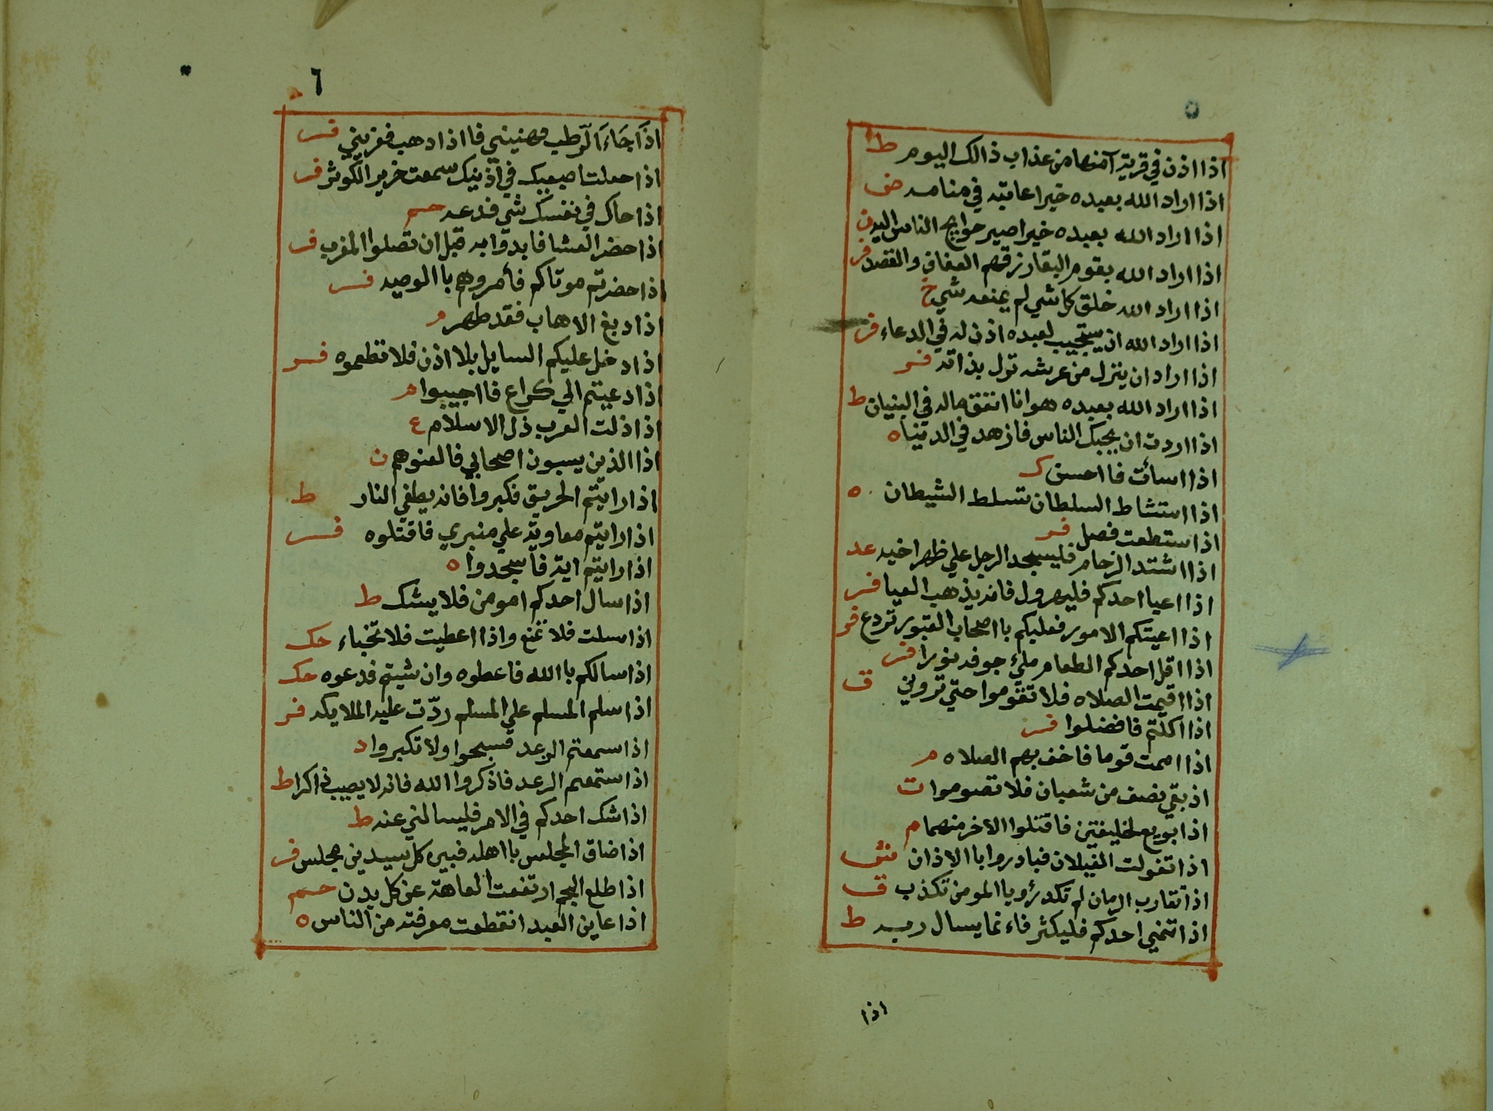 ٥
اذا اذن في قرية آمنها من عذاب ذالك اليوم ط
اذا اراد الله بعبده خيرا عاتبه في منامه ض
اذا اراد الله بعبده خيرا صير حوايج الناس اليه
اذا اراد الله بقوم البقا رزقهم العفاف والقصد فر
اذا اراد الله خلق كل شي لم يمنعه شي خ
اذا اراد الله ان يستجيب لعبده اذن له في الدعاء فر
اذا اراد ان ينزل من عرشه نزل بذاته فر
اذا اراد الله بعبده هوانا انفق ماله في البنيان ط
اذا اردت ان يحبك الناس فازهد في الدنيا ه
اذا اسأت فا احسن ك
اذا استشاط السلطان تسلط الشيطان ٥
اذا ستطعت فصل فر
اذا اشتد الزحام فليسجد الرجل علي ظهر اخيه عد
اذا اعيا احدكم فليهرول فانه يذهب العيا فر
اذا اعيتكم الامور فعليكم با اصحاب القبور تردع فر
اذا اقل احدكم الطعام ملي جوفه نورا فر
اذا اقيمت الصلاه فلا تقوموا حتي تروني ق
اذا اكلتم فافضلوا فر
اذا اممت قوما فاخف بهم الصلاه م
اذ بقي نصف من شعبان فلا تصوموا ت
اذا بويع لخليفتين فاقتلوا الاخر منهما م
اذا تغولت الغيلان فبادروا با الاذان
اذا تقارب الزمان لم تكد رؤيا المومن تكذب ق
اذا تمني احدكم فليكثر فاء نما يسال ربه ط
اذا
٦
اذا جاء الرطب فهنيني فا اذا دهب فعزيني فر
اذا جعلت اصبعيك في اذنيك سمعت خرير الكوثر فر
اذا حاك في نفسك شي فدعه حم
اذا حضر العشا فابدوا به قبل ان تصلوا المغرب فر
اذا حضرتم موتاكم فأمروهم با الوصيه فر
اذا دبغ الاهاب فقد طهر م
اذا دخل عليكم السايل بلا اذن فلا تطعموه فر
اذا دعيتم الي كراع فا اجيبوا م
اذا ذلت العرب ذل الاسلام ع
اذا الذين يسبون اصحابي فالعنوهم ن
اذا رايتم الحريق فكبروا فانه يطفي النار ط
اذا رايتم معاوية علي منبري فاقتلوه فر
اذا رايتم اية فأسجدوا ٥
اذا سال احدكم امومن فلا يشك ط
اذا سلت فلا تمنع واذا اعطيت فلا تخباء حك
اذا سالكم با الله فاعطوه وان شيتم فدعوه حك
اذا سلم المسلم علي المسلم ردت عليه الملايكه فر
اذا سمعتم الرعد فسبحوا ولا تكبروا د
اذا ستمعتم الرعد فاذكروا الله فانه لا يصيب ذاكرا ط
اذا شك احدكم في الامر فليسالني عنه ط
اذا ضاق المجلس با اهله فبين كل سيدين مجلس فر
اذا طلع النجم ارتفعت العاهة عن كل بلدن حم
اذا عاين العبد انقطعت معرفته من الناس ٥